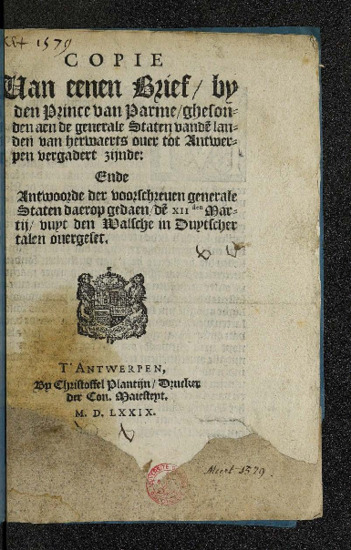 1579
COPIE
Van eenen Brief/ by
den Prince van Parme/ gheson-
den aen de generale Staten vandẽ lan-
den van herwaerts ouer tot Antwer-
pen vergadert zijnde:
Ende
Antwoorde der voorschreuen generale
Staten daerop gedaen/ dẽ XII den Mar-
tij/ vuyt den Walsche in Duytscher
talen ouergeset.
T'ANTWERPEN,
By Christoffel Plantijn/ Drucker
der Con. Maiesteyt.
M. D. LXXIX.
Meert 1579